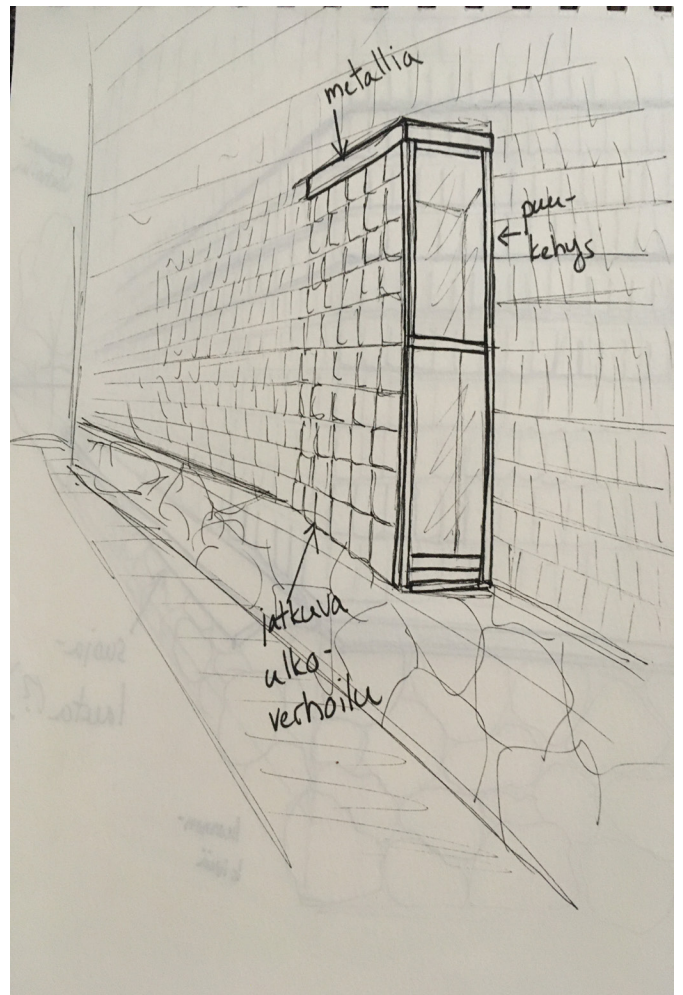 metallia
puu-
kehys
jatkuva
ulko-
verhoilu